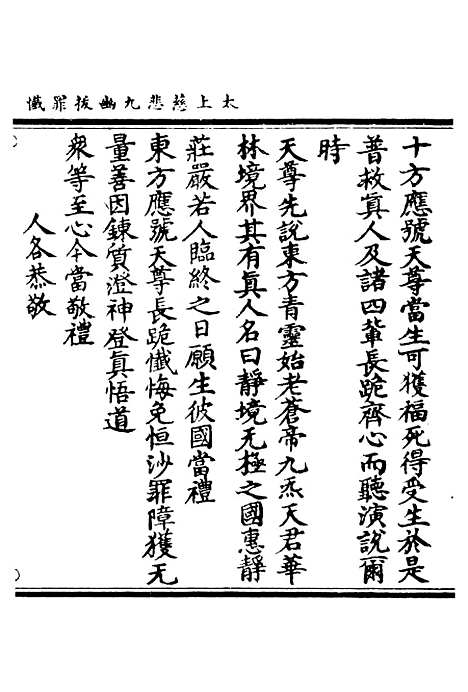 太上慈悲九幽拔罪懺
十方應號天尊當生可獲福死得受生於是
普救眞人及諸四軰長跪齊心而聽演說爾
時
天尊先說東方青靈始老蒼帝九炁天君華
林境界其有眞人名曰靜境无極之國惠靜
莊嚴若人臨終之日願生彼國當禮
東方應號天尊長跪懺悔免恒沙罪障獲无
量善因鍊質澄神登眞悟道
衆等至心今當敬禮
人各恭敬